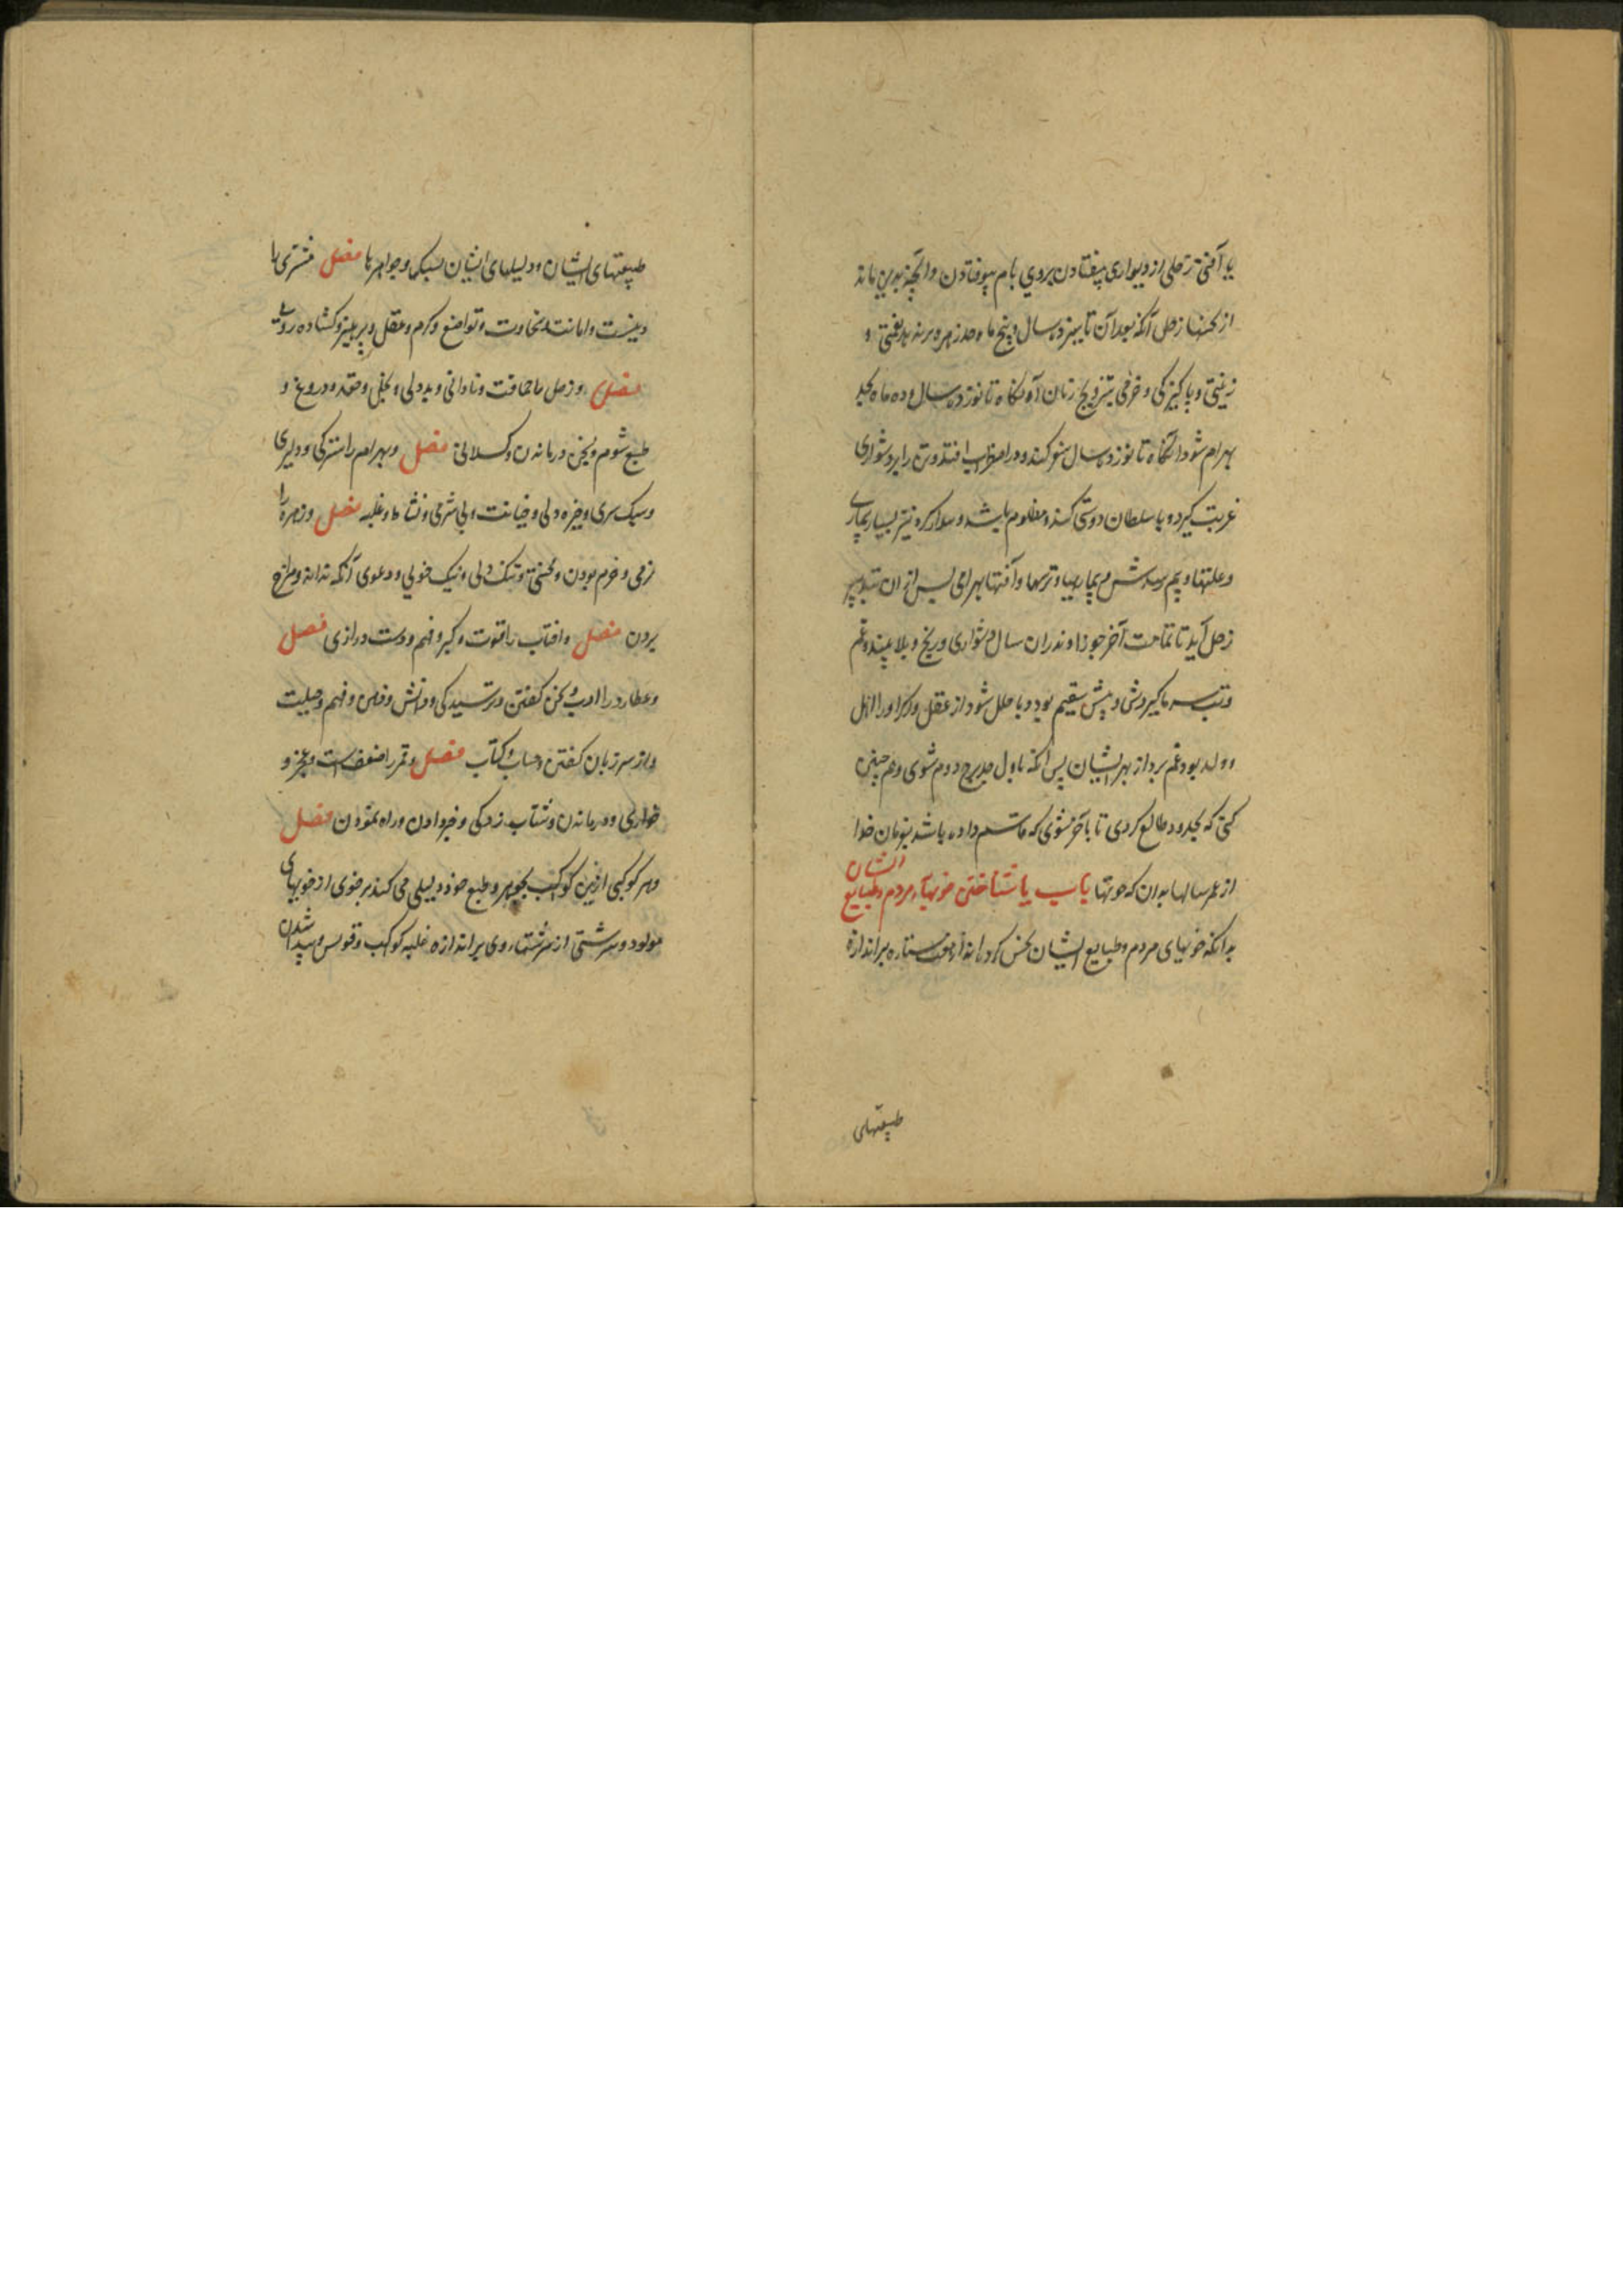 یا آفتی زحلی از دیواری بیفتادن بروی بام بیوفتادن و آنچه بدین ماند
از زحل آنکه بعد آن تا سیزده سال و پنج ماه حد زهره
زینتی و پاکیزکی و خرمی بتزویج زنان آنکاه تا نوزده سال و ده ماه بحد
بهرام شود آنکاه تا نوزده سال سفر کند و در اضطراب افتد و تن را بدشواری
غربت کیرد و با سلطان دوستی کند و مظلوم باشد و سوار کره نیز بسیار بیماری
و علتها و بیم رسدش و بیماریها و ترسها و آفتها بهرامی پس از آن بتدبیر
زحل آید تا تمامت آخر جوزا و ندران سال دشواری و رنج و بلا بیند و غم
و تب سرما کیردش و سقیم بود و با خلل شود از عقل
و ولد بود غم بردار بهر ایشان پس آنکه باول دوم شوی و هم چنین
که بحدود طالع کردی تا بآخر شوی که قاسم داده باشد بفرمان خدا
از عمر سالها بدان که خویها باب یا شناختن خویهاء مردم و طبایع ایشان
بدانکه خویهای مردم و طبایع ایشان بخش کرده اند از هفت ستاره بر اندازه
طبیعتهای
طبیعتهای ایشان و دلیلهای ایشان و جواهرها فصل مشتری را
دینست و امانت و سخاوت و تواضع و کرم و عقل و پرهیز و کشاده رویی
فصل و زحل را حماقت و نادانی و بددلی و بخیلی و حقد و دروغ و
طبع شوم و درماندن و کسلانی فصل و بهرام را سترکی و دلیری
و سبک سری و خیره دلی و خیانت و بی شرمی و نشاط و غلبه فصل و زهره را
نرمی و خرم بودن و تنک دلی و نیک خویی و دعوی آنکه نداند و مزاح
بردن فصل و افتاب را قوت و کبر و فهم و دست درازی فصل
و عطارد را ادب و سخن کفتن و ترسیدکی و دانش و فهم و حیلت
و از سر زبان کفتن و حساب و کتاب فصل و قمر را ضعفست و عجز و
خواری و درماندن و شتاب زدکی و خبر دادن و راه نمودن فصل
و هر کوکبی ازین کواکب بجوهر و طبع خود دلیلی می کند بر خوی از خویهای
مولود و سرشتی از سرشتهاء وی بر اندازه غلبه کواکب و قویش و پیدا شدن